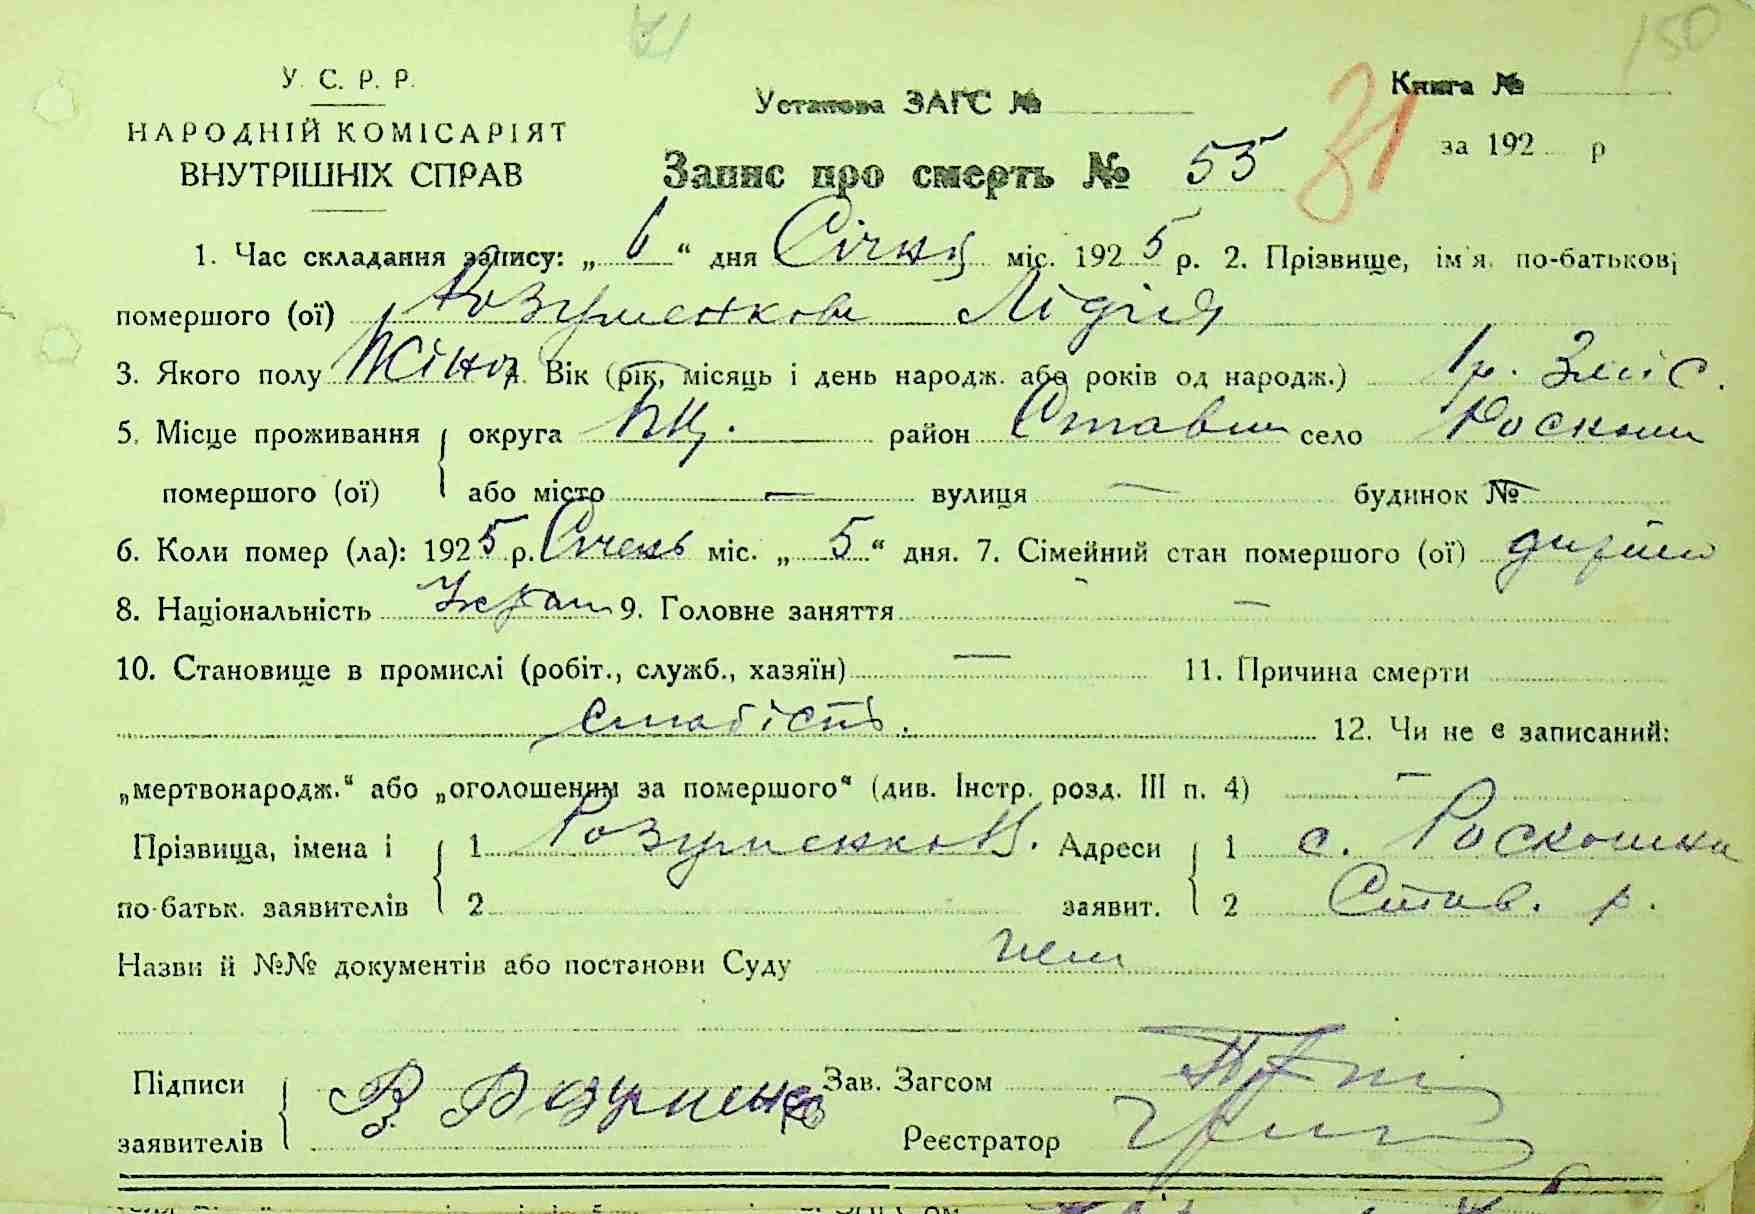 150
У. С. Р. Р.
НАРОДНІЙ КОМІСАРІЯТ
ВНУТРІШНІХ СПРАВ
Установа ЗАГС №
Книга №
за 192 р
Запис про смерть № 55
31
1. Час складання запису: „ 6 “ дня Січня міс. 1925 р. 2. Прізвище, ім'я, по-батькові
помершого (ої) Розуменкова Лідія
3. Якого полу Жіноч. Вік (рік, місяць і день народж. або років од народж.) 1 р. 3 міс.
5. Місце проживання округа БЦ. район Ставищ село Роскошн
помершого (ої) або місто — вулиця — будинок № —
6. Коли помер (ла): 1925 р. Січень міс. „ 5 “ дня. 7. Сімейний стан помершого (ої) дитина
8. Національність Украін 9. Головне заняття —
10. Становище в промислі (робіт., служб., хазяїн) — 11. Причина смерти
слабість. 12. Чи не є записаний:
„мертвонародж.“ або „оголошеним за помершого“ (див. Інстр. розд. III п. 4) —
Прізвища, імена і 1 Розуменко В. Адреси 1 с. Роскошна
по-батьк. заявителів 2 заявит. 2 Став. р.
Назви й №№ документів або постанови Суду нет
Підписи В. Розуменко Зав. Загсом
заявителів Реєстратор